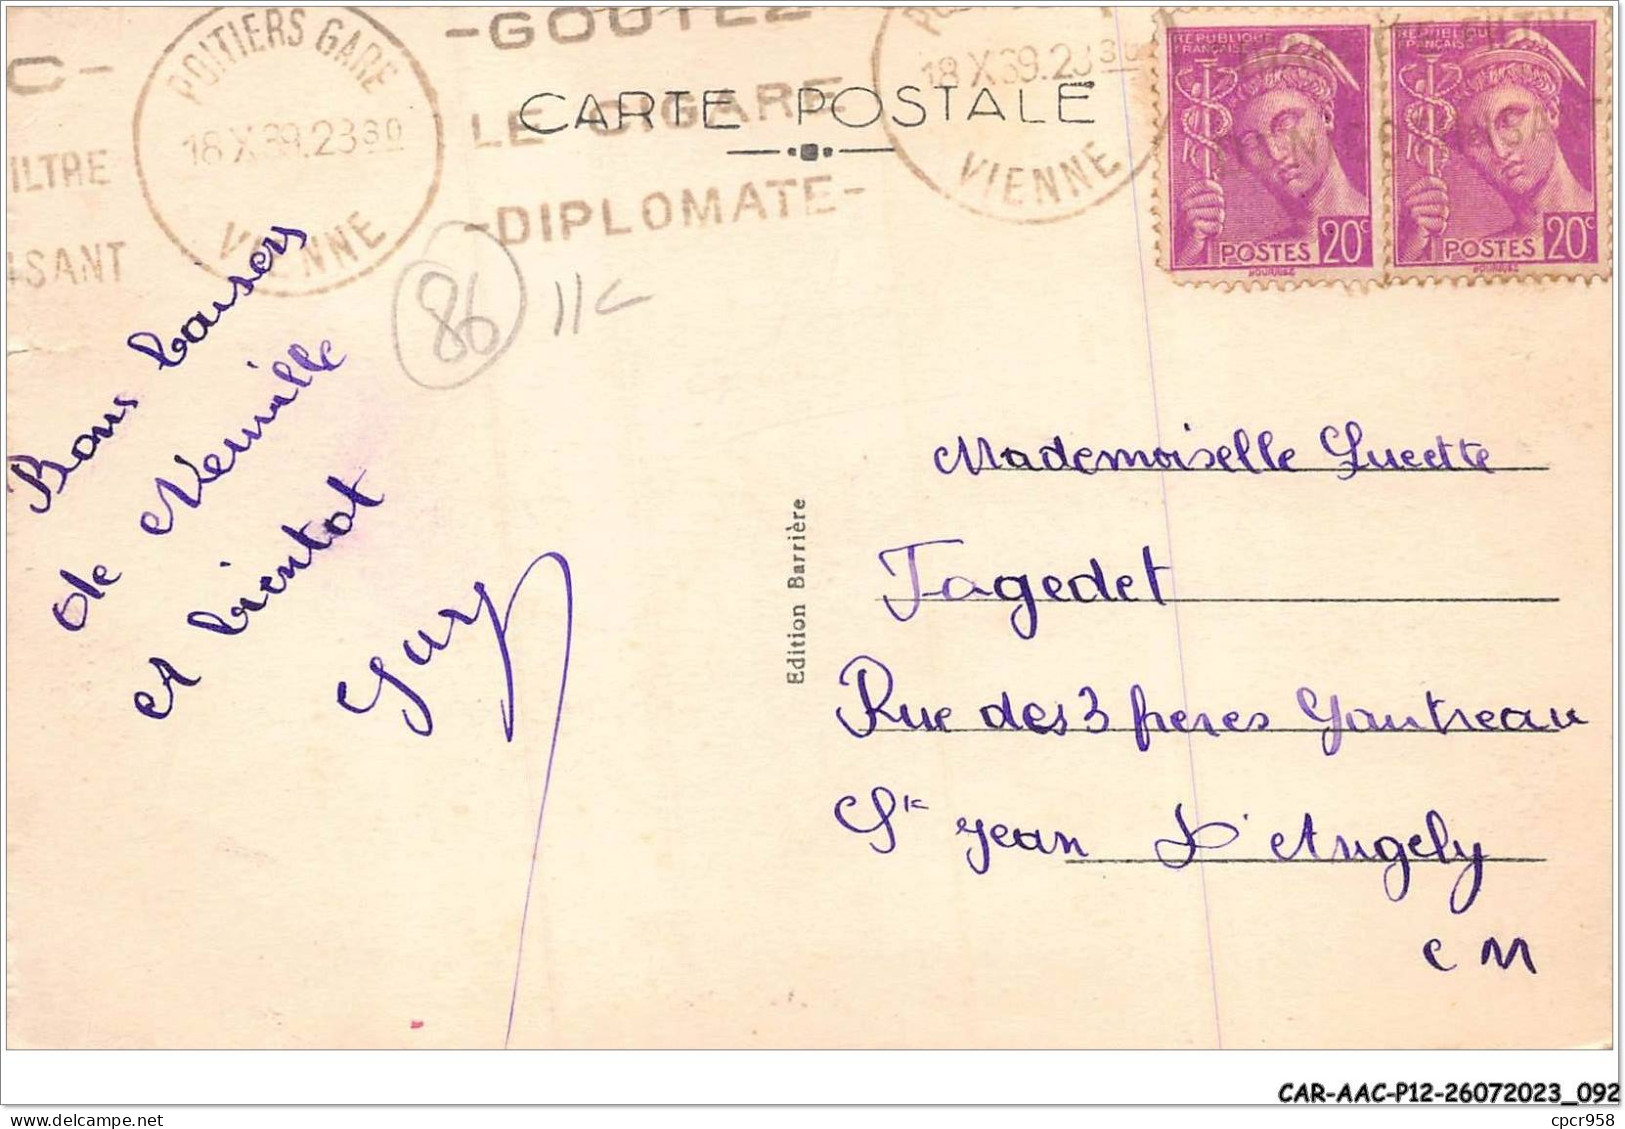 -GOUTEZ
LE CIGARE
-DIPLOMATE-
C-
ILTRE
ISANT
POITIERS GARE
18 X 39.23 30
VIENNE
18 X 39.23 30
VIENNE
CARTE POSTALE
REPUBLIQUE FRANÇAISE
POSTES 20c
REPUBLIQUE FRANÇAISE
POSTES 20c
86
Bons baisers
de Neuville
et bientot
Guy
Edition Barrière
Mademoiselle Lucette
Tagedet
Rue des 3 freres Gautreau
St Jean D'Angely
C M
CAR-AAC-P12-26072023_092
delcampe.net
cpcr958